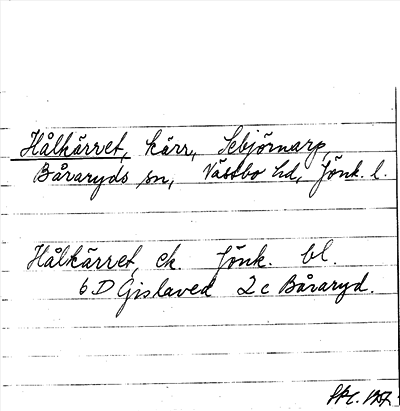 Hålkärret, kärr, Sebjörnarp,
Båraryds sn, Västbo hd, Jönk. l.
Hålkärret, ek Jönk. bl.
6 D Gislaved 2 c Båraryd.